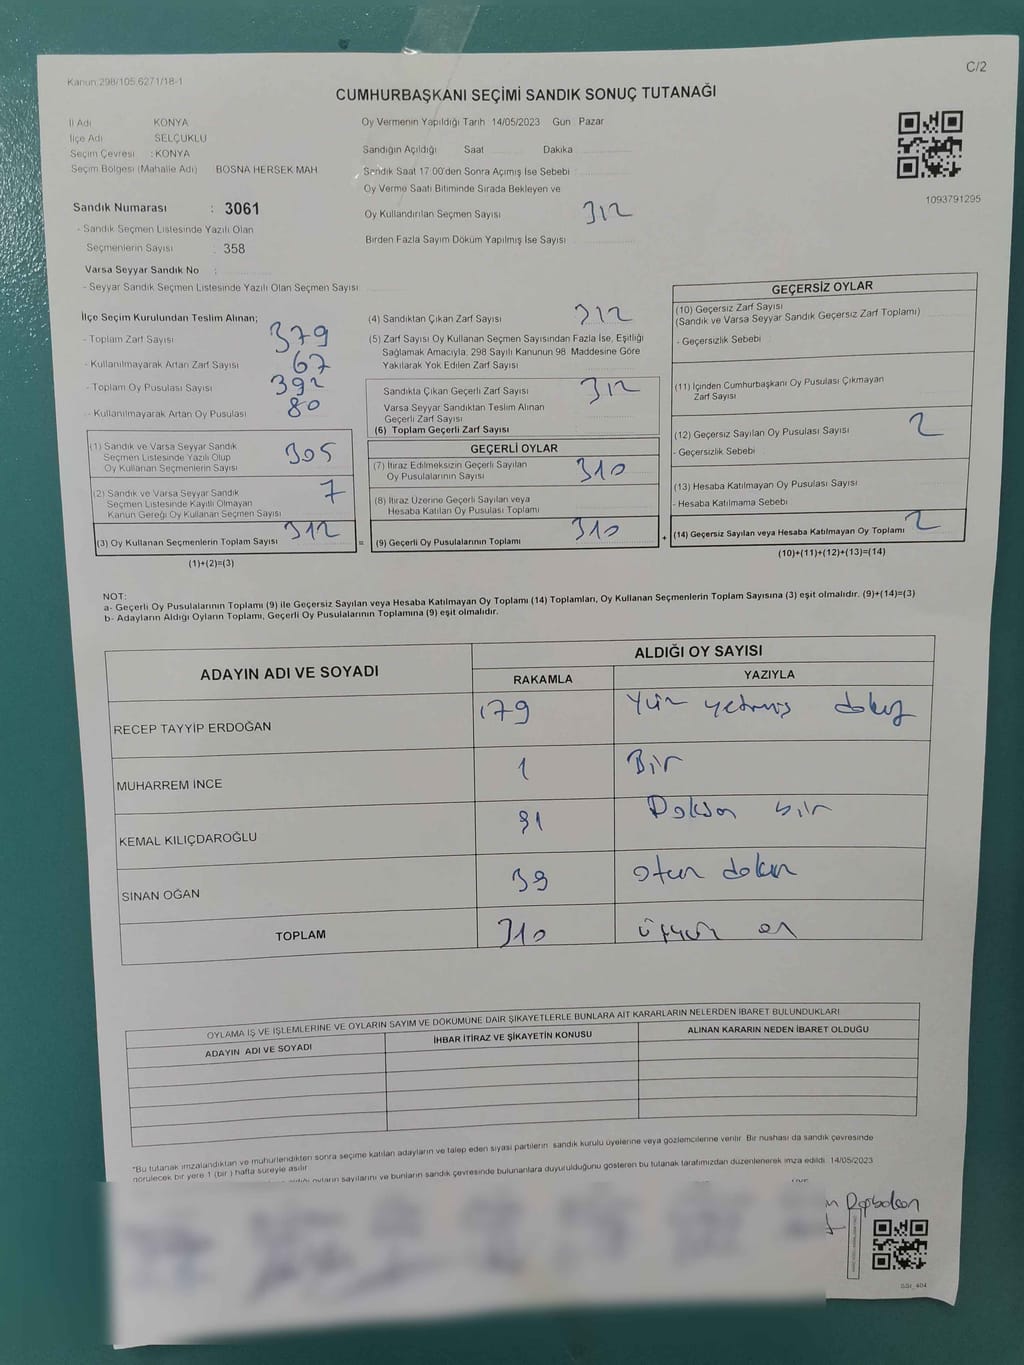 Kanun 298/105 6271/18-1
C/2
CUMHURBAŞKANI SEÇİMİ SANDIK SONUÇ TUTANAĞI
İl Adı KONYA
İlçe Adı SELÇUKLU
Seçim Çevresi : KONYA
Seçim Bölgesi (Mahalle Adı) BOSNA HERSEK MAH
Sandık Numarası : 3061
- Sandık Seçmen Listesinde Yazılı Olan
Seçmenlerin Sayısı : 358
Varsa Seyyar Sandık No :
- Seyyar Sandık Seçmen Listesinde Yazılı Olan Seçmen Sayısı
Oy Vermenin Yapıldığı Tarih 14/05/2023 Gün Pazar
Sandığın Açıldığı Saat Dakika
Sandık Saat 17 00'den Sonra Açımış İse Sebebi
Oy Verme Saati Bitiminde Sırada Bekleyen ve
Oy Kullandırılan Seçmen Sayısı 312
Birden Fazla Sayım Döküm Yapılmış İse Sayısı
1093791295
İlçe Seçim Kurulundan Teslim Alınan;
- Toplam Zarf Sayısı 379
- Kullanılmayarak Artan Zarf Sayısı 67
- Toplam Oy Pusulası Sayısı 392
- Kullanılmayarak Artan Oy Pusulası 80
(1) Sandık ve Varsa Seyyar Sandık
Seçmen Listesinde Yazılı Olup
Oy Kullanan Seçmenlerin Sayısı 305
(2) Sandık ve Varsa Seyyar Sandık
Seçmen Listesinde Kayıtlı Olmayan
Kanun Gereği Oy Kullanan Seçmen Sayısı 7
(3) Oy Kullanan Seçmenlerin Toplam Sayısı 312
(1)+(2)=(3)
(4) Sandıktan Çıkan Zarf Sayısı 312
(5) Zarf Sayısı Oy Kullanan Seçmen Sayısından Fazla İse, Eşitliği
Sağlamak Amacıyla; 298 Sayılı Kanunun 98 Maddesine Göre
Yakılarak Yok Edilen Zarf Sayısı
Sandıkta Çıkan Geçerli Zarf Sayısı 312
Varsa Seyyar Sandıktan Teslim Alınan
Geçerli Zarf Sayısı
(6) Toplam Geçerli Zarf Sayısı
GEÇERLİ OYLAR
(7) İtiraz Edilmeksizin Geçerli Sayılan
Oy Pusulalarının Sayısı 310
(8) İtiraz Üzerine Geçerli Sayılan veya
Hesaba Katılan Oy Pusulası Toplamı
= (9) Geçerli Oy Pusulalarının Toplamı 310
GEÇERSİZ OYLAR
(10) Geçersiz Zarf Sayısı
(Sandık ve Varsa Seyyar Sandık Geçersiz Zarf Toplamı)
- Geçersizlik Sebebi
(11) İçinden Cumhurbaşkanı Oy Pusulası Çıkmayan
Zarf Sayısı
(12) Geçersiz Sayılan Oy Pusulası Sayısı 2
- Geçersizlik Sebebi
(13) Hesaba Katılmayan Oy Pusulası Sayısı
- Hesaba Katılmama Sebebi
+ (14) Geçersiz Sayılan veya Hesaba Katılmayan Oy Toplamı 2
(10)+(11)+(12)+(13)=(14)
NOT:
a- Geçerli Oy Pusulalarının Toplamı (9) ile Geçersiz Sayılan veya Hesaba Katılmayan Oy Toplamı (14) Toplamları, Oy Kullanan Seçmenlerin Toplam Sayısına (3) eşit olmalıdır. (9)+(14)=(3)
b- Adayların Aldığı Oyların Toplamı, Geçerli Oy Pusulalarının Toplamına (9) eşit olmalıdır.
ADAYIN ADI VE SOYADI ALDIĞI OY SAYISI
RAKAMLA YAZIYLA
RECEP TAYYİP ERDOĞAN 179 Yüz yetmiş dokuz
MUHARREM İNCE 1 Bir
KEMAL KILIÇDAROĞLU 91 Doksan bir
SİNAN OĞAN 39 otuz dokuz
TOPLAM 310 üçyüz on
OYLAMA İŞ VE İŞLEMLERİNE VE OYLARIN SAYIM VE DÖKÜMÜNE DAİR ŞİKAYETLERLE BUNLARA AİT KARARLARIN NELERDEN İBARET BULUNDUKLARI
ADAYIN ADI VE SOYADI İHBAR İTİRAZ VE ŞİKAYETİN KONUSU ALINAN KARARIN NEDEN İBARET OLDUĞU
"Bu tutanak imzalandıktan ve mühürlendikten sonra seçime katılan adayların ve talep eden siyasi partilerin sandık kurulu üyelerine veya gözlemcilerine verilir. Bir nüshası da sandık çevresinde
görülecek bir yere 1 (bir) hafta süreyle asılır
oyların sayılarını ve bunların sandık çevresinde bulunanlara duyurulduğunu gösteren bu tutanak tarafımızdan düzenlenerek imza edildi. 14/05/2023